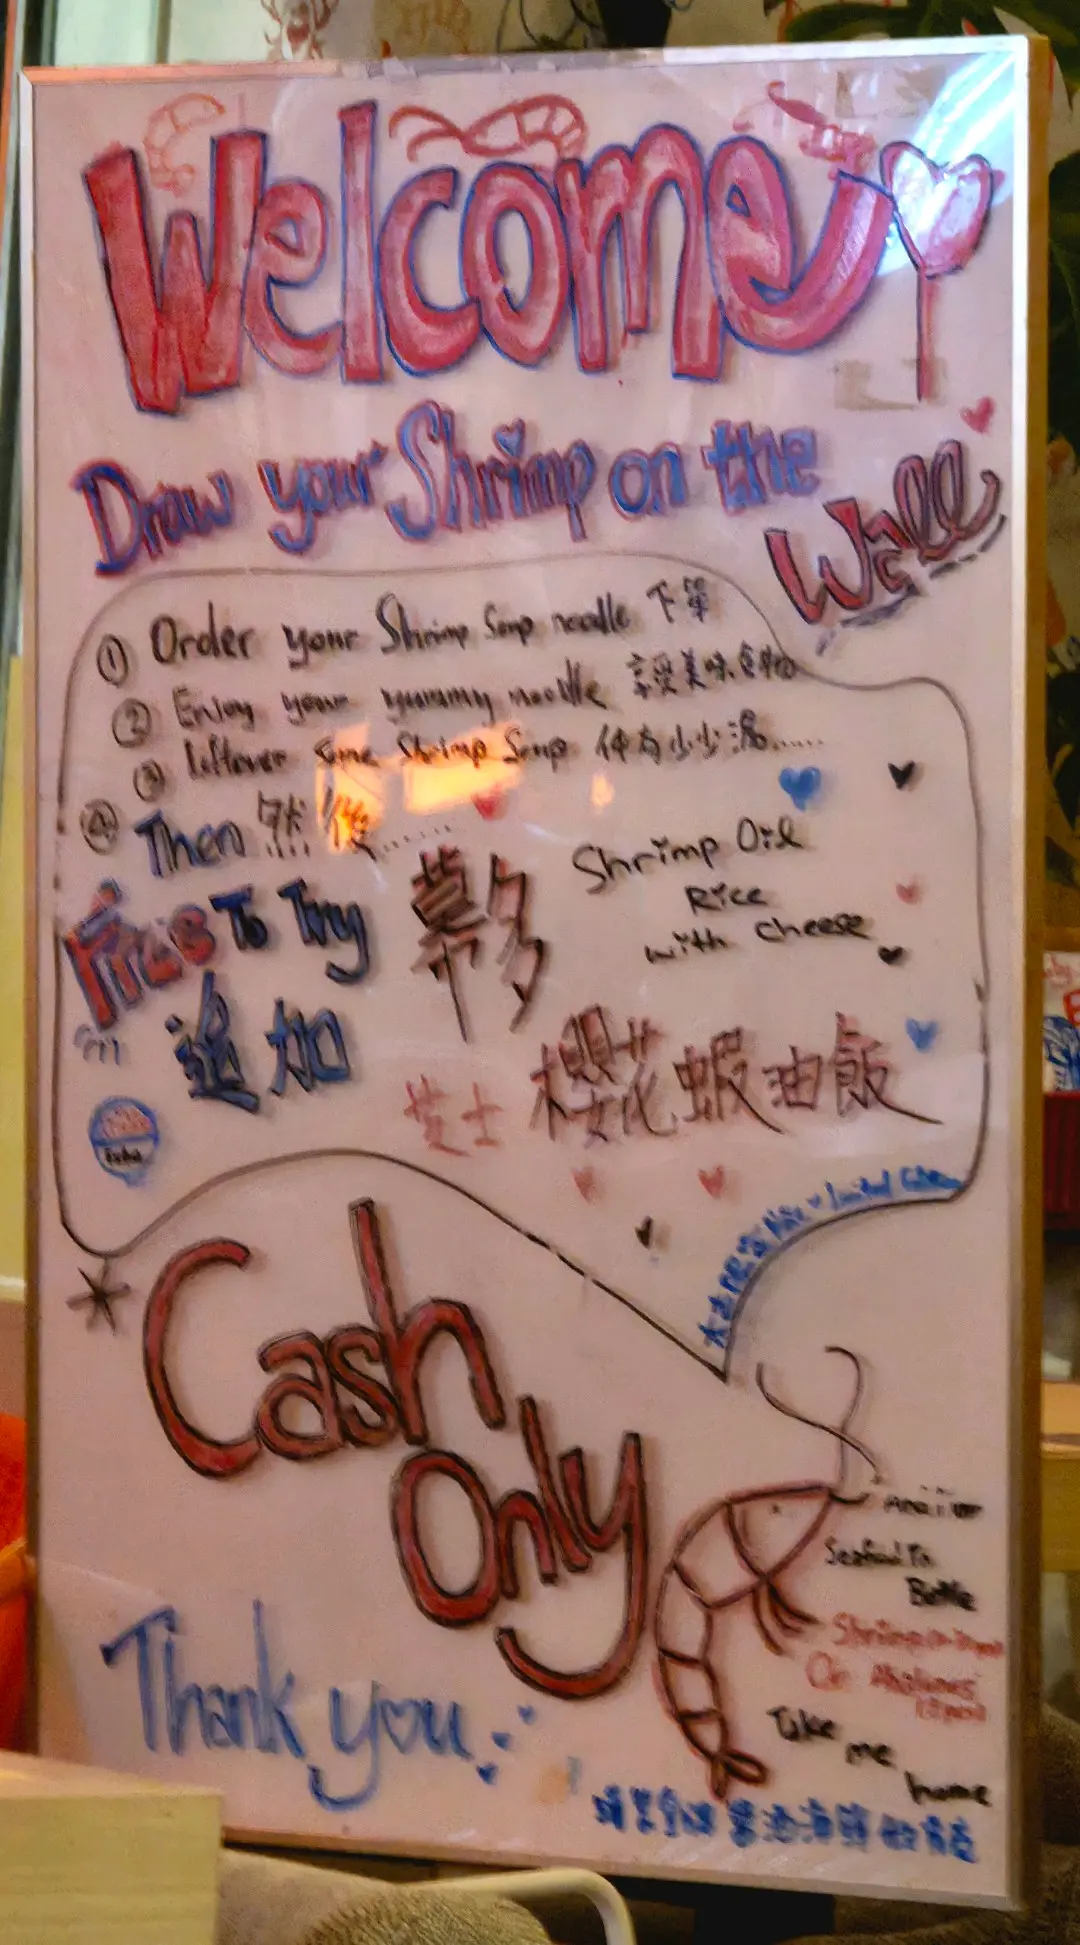 Welcome
Draw your Shrimp on the
Wall
① Order your Shrimp Soup noodle 下單
② Enjoy your yummy noodle 享受美味食物
③ leftover some Shrimp Soup 仲有少少湯......
④ Then 然後......
To Try
追加
幕多
Shrimp Oil
Rice
with cheese
芝士
櫻花蝦油飯
Limited
* Cash
Only
Seafood To
Bottle
Or
Take me home
Thank you